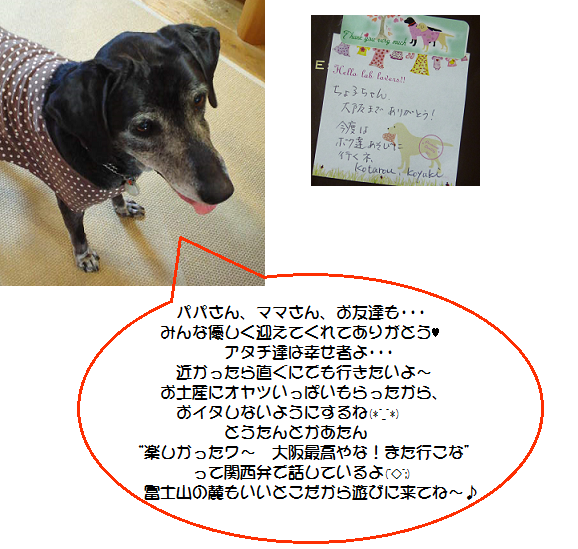 Thank you very much
Hello lab lovers!!
ちょろちゃん
大阪まで ありがとう!
今度は
ボク達あそびに
行くネ
Kotarou, Koyuki
パパさん、ママさん、お友達も・・・
みんな優しく迎えてくれてありがとう♥
アタチ達は幸せ者よ・・・
近かったら直ぐにでも行きたいよ～
お土産にオヤツいっぱいもらったから、
おイタしないようにするね(*^_^*)
とうたんとかあたん
“楽しかったワ～　大阪最高やな！きた行こな”
って関西弁で話しているよ(^◇^;)
富士山の麓もいいとこだから遊びに来てね～♪